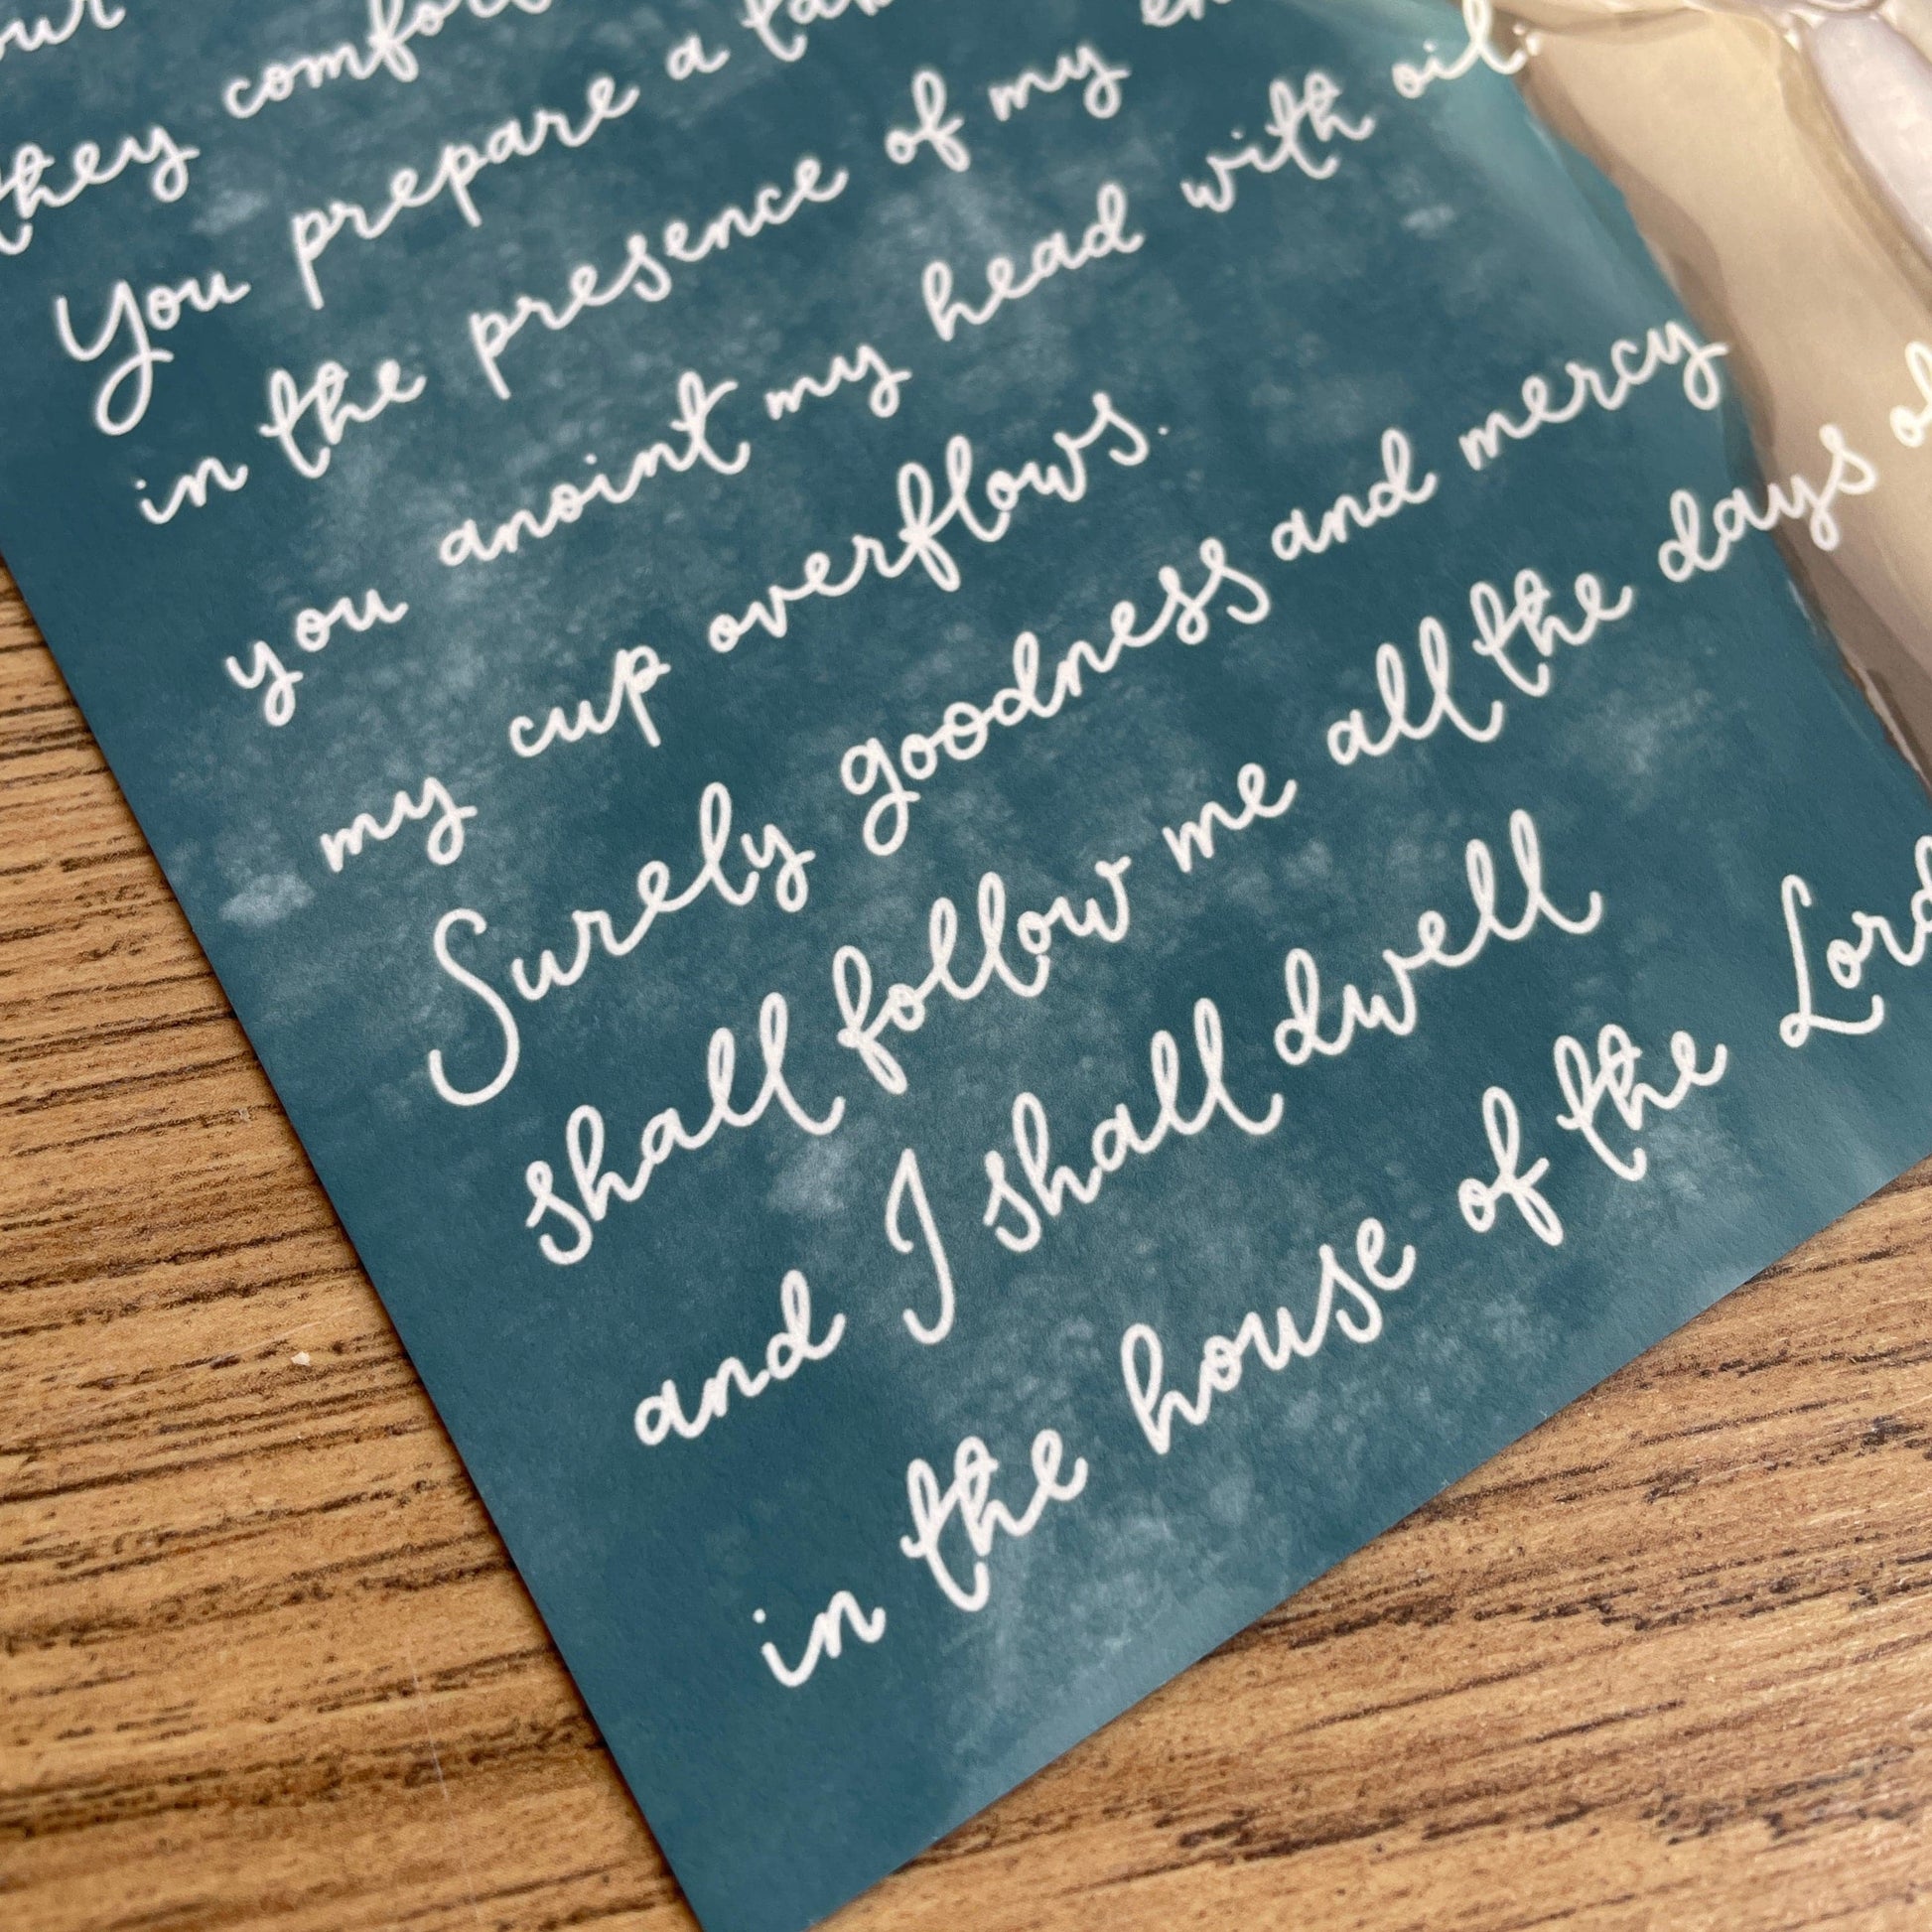 they
You prepare a
in the presence of my
you anoint my head with oil;
my cup overflows.
Surely goodness and mercy
shall follow me all the days
and I shall dwell
in the house of the Lord